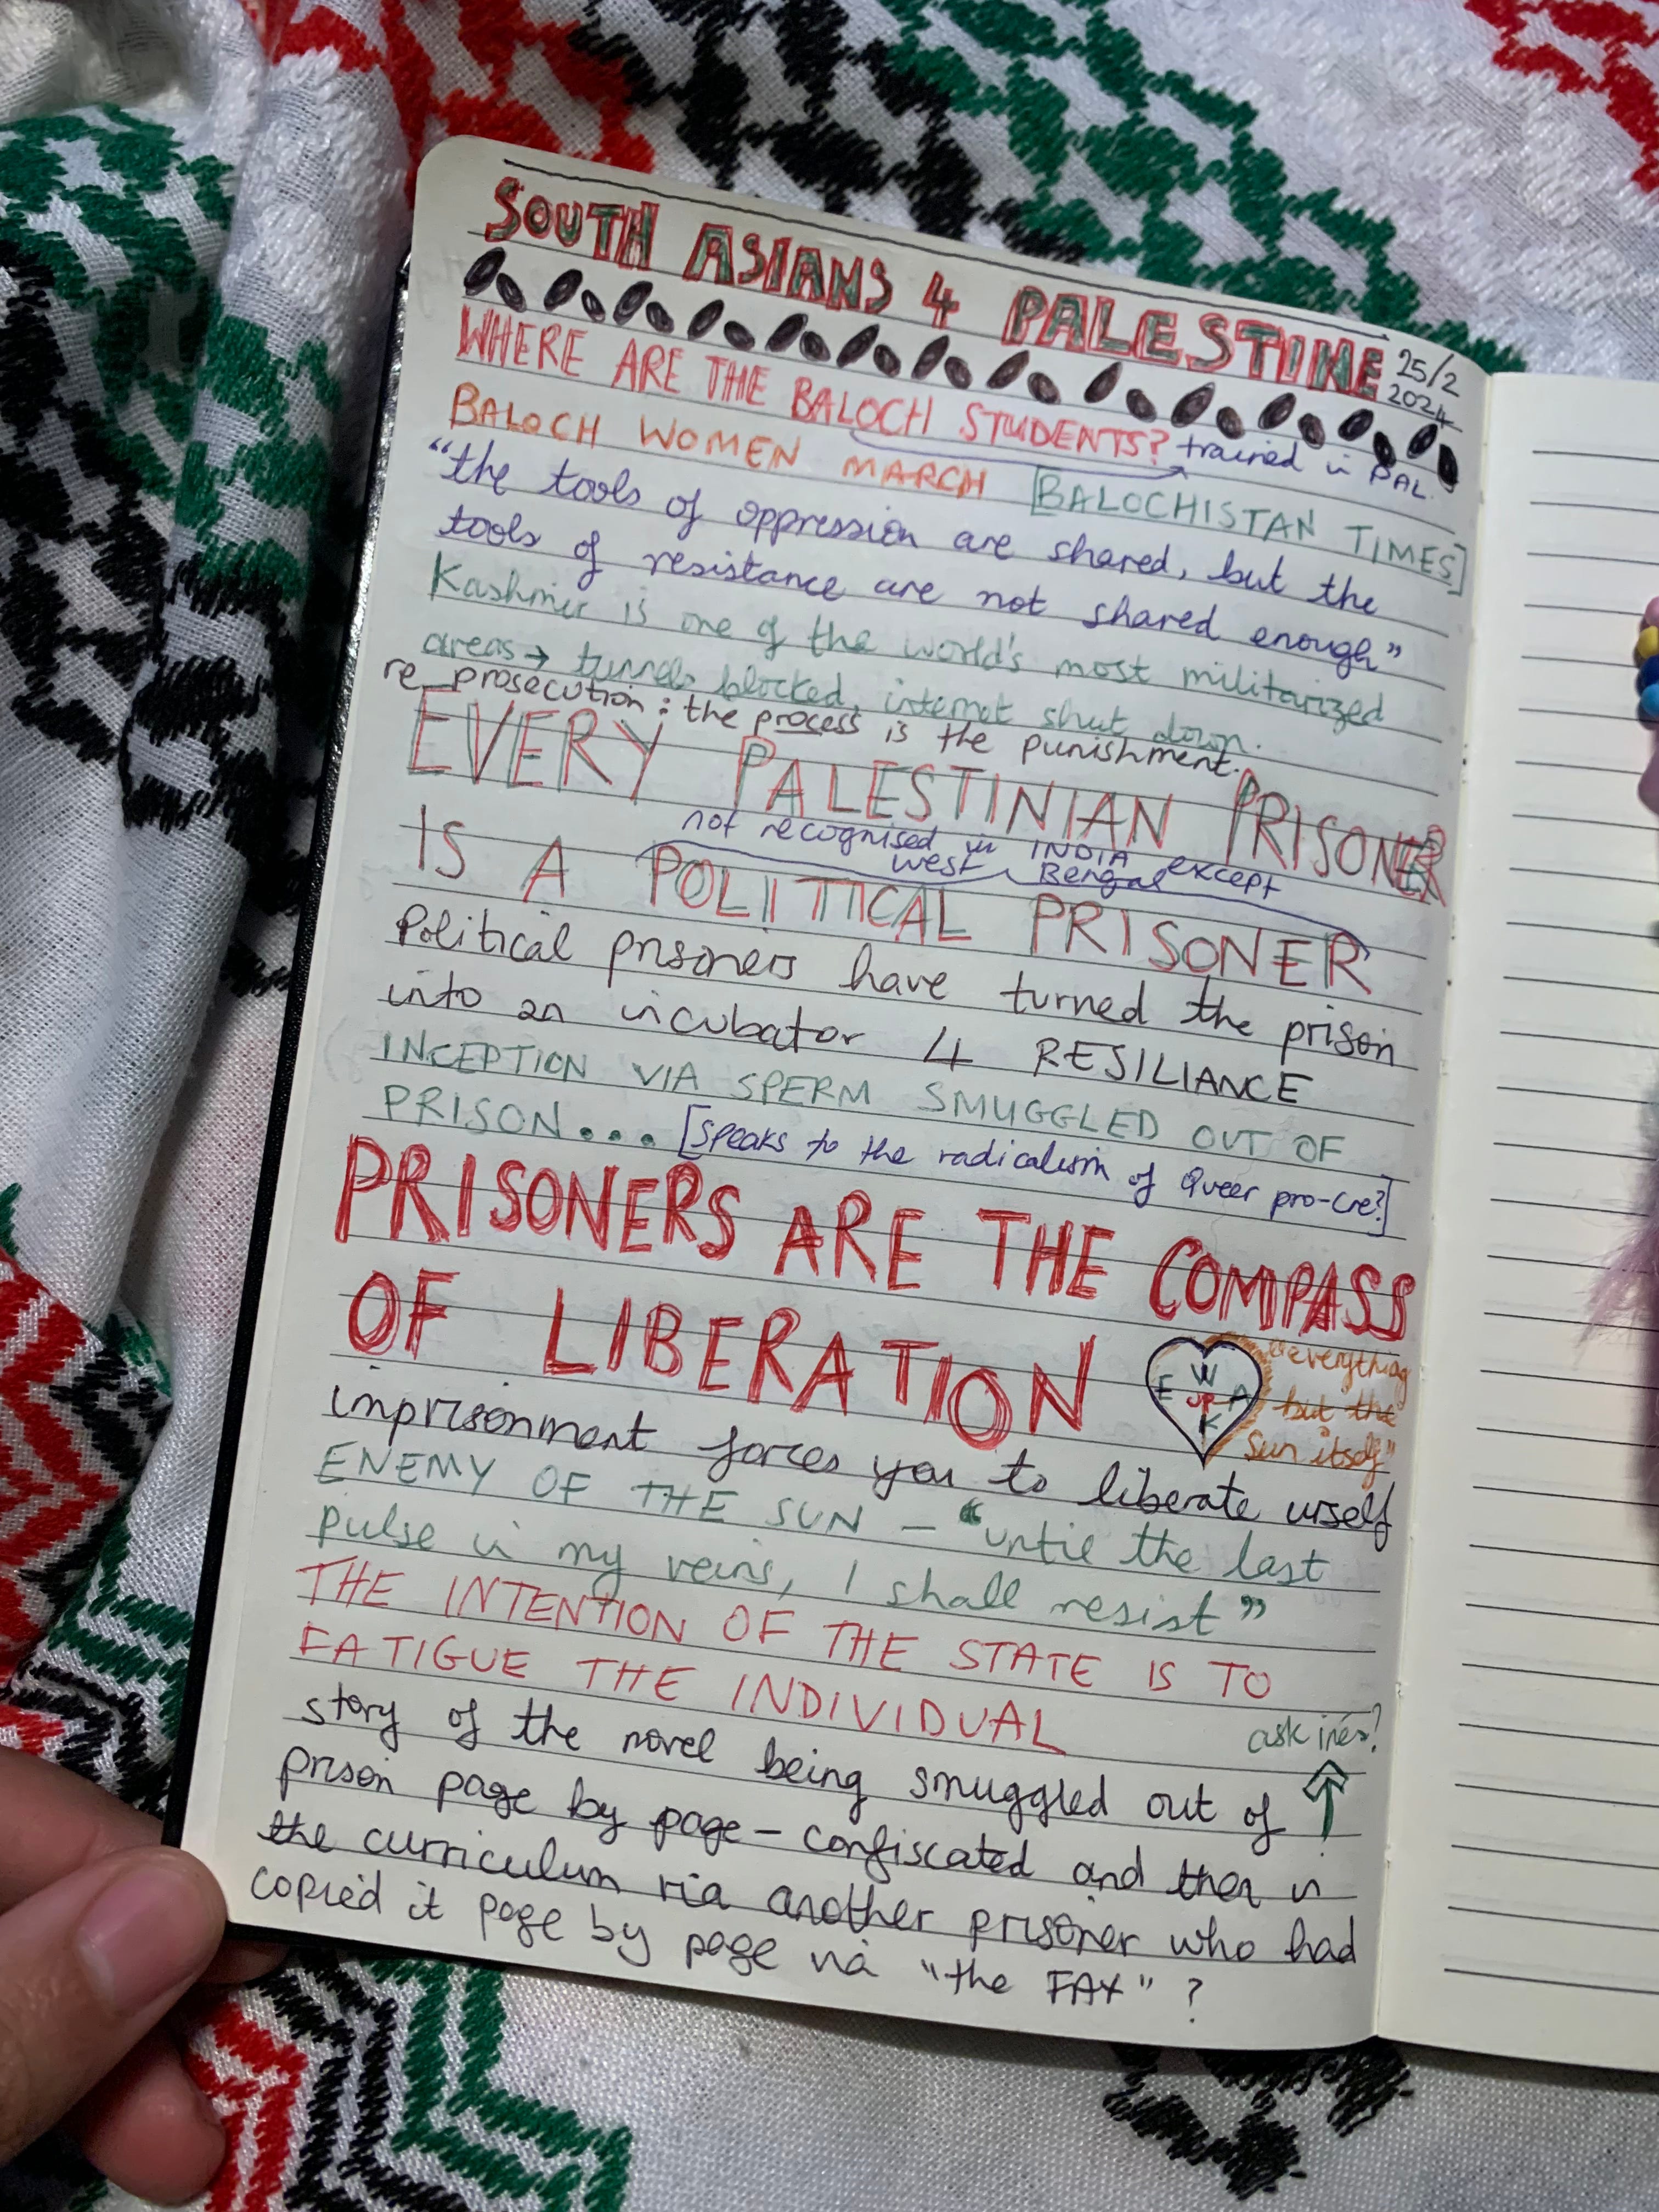 SOUTH ASIANS 4 PALESTINE
25/2
2024
WHERE ARE THE BALOCH STUDENTS? trained in PAL.
BALOCH WOMEN MARCH [BALOCHISTAN TIMES]
"the tools of oppression are shared, but the
tools of resistance are not shared enough"
Kashmir is one of the world's most militarized
areas → tunnels blocked, internet shut down.
re prosecution: the process is the punishment.
EVERY PALESTINIAN PRISONER
not recognised in INDIA except
West Bengal
IS A POLITICAL PRISONER
Political prisoners have turned the prison
into an incubator 4 RESILIANCE
INCEPTION VIA SPERM SMUGGLED OUT OF
PRISON... [speaks to the radicalism of Queer pro-cre?]
PRISONERS ARE THE COMPASS
OF LIBERATION
W
E UR A
K
"everything
but the
Sun itself"
imprisonment forces you to liberate urself
ENEMY OF THE SUN - "until the last
pulse in my veins, I shall resist"
THE INTENTION OF THE STATE IS TO
FATIGUE THE INDIVIDUAL
ask inés?
story of the novel being smuggled out of ↑
prison page by page - confiscated and then in
the curriculum via another prisoner who had
copied it page by page via "the FAX" ?